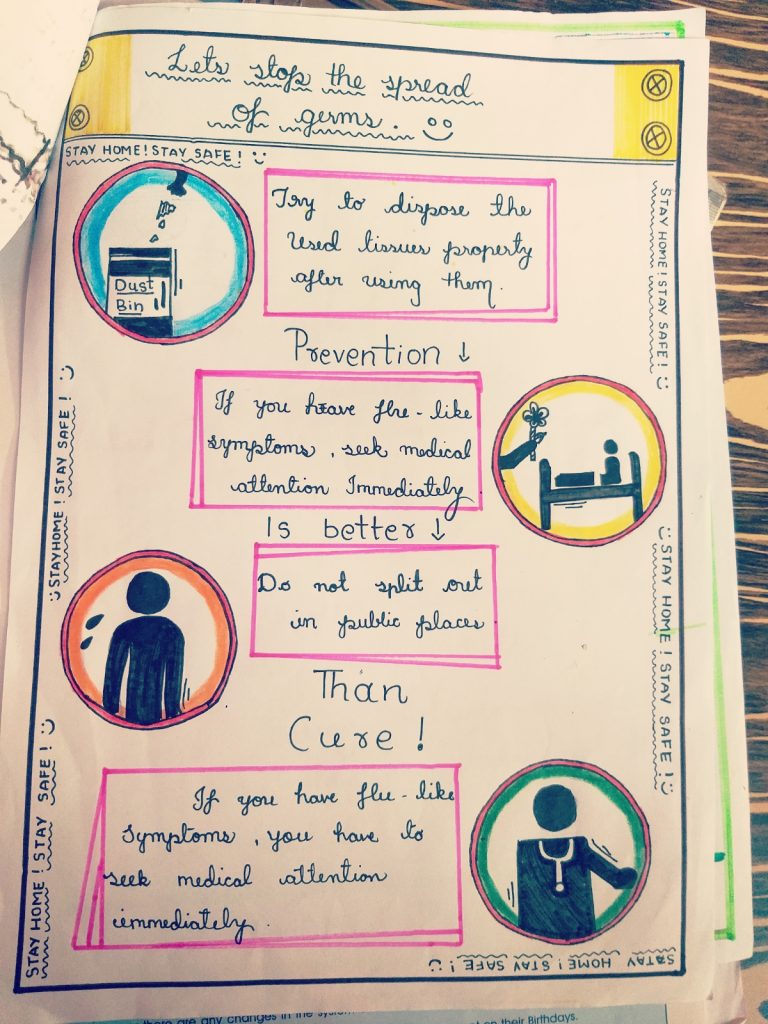 Lets stop the spread
Of germs.
STAY HOME! STAY SAFE!
Try to dispose the
used tissues property
after using them.
Dust
Bin
STAY HOME! STAY SAFE!
Prevention ↓
If you have flu-like
symptoms, seek medical
attention Immediately
STAYHOME! STAY SAFE!
Is better ↓
Do not split out
in public places
STAY HOME! STAY SAFE!
Than
Cure!
If you have flu-like
symptoms, you have to
seek medical attention
immediately.
STAY HOME! STAY SAFE!
SATAY HOME! STAY SAFE!
there are any changes in the system
on their Birthdays.